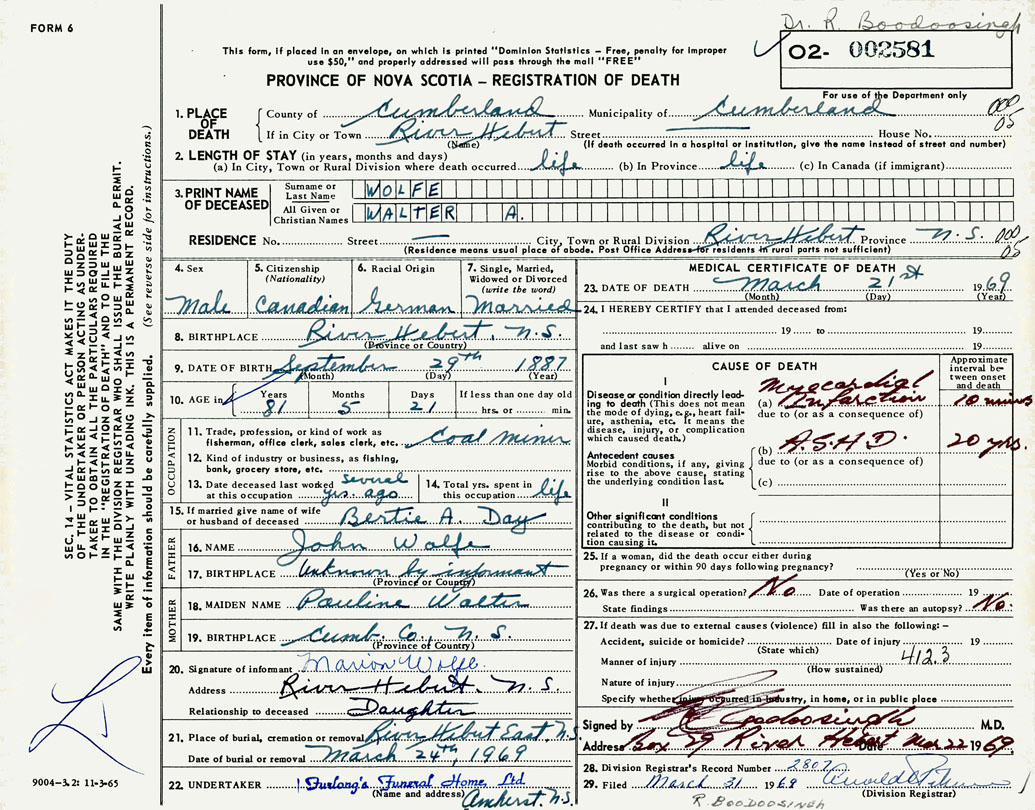 FORM 6
Dr. R. Boodoosingh
This form, if placed in an envelope, on which is printed "Dominion Statistics – Free, penalty for improper
use $50," and properly addressed will pass through the mail "FREE"
O2- 002581
PROVINCE OF NOVA SCOTIA – REGISTRATION OF DEATH
For use of the Department only
1. PLACE OF DEATH
County of Cumberland Municipality of Cumberland 000
If in City or Town River Hebert Street — House No. 05
(Name) (If death occurred in a hospital or institution, give the name instead of street and number)
2. LENGTH OF STAY (in years, months and days)
(a) In City, Town or Rural Division where death occurred life (b) In Province life (c) In Canada (if immigrant)
3. PRINT NAME OF DECEASED
Surname or Last Name WOLFE
All Given or Christian Names WALTER A.
RESIDENCE No. Street — City, Town or Rural Division River Hebert Province N.S. 000
(Residence means usual place of abode. Post Office Address for residents in rural parts not sufficient) 05
4. Sex Male
5. Citizenship (Nationality) Canadian
6. Racial Origin German
7. Single, Married, Widowed or Divorced (write the word) Married
8. BIRTHPLACE River Hebert, N.S.
(Province or Country)
9. DATE OF BIRTH September 29th 1887
(Month) (Day) (Year)
10. AGE in Years Months Days If less than one day old
81 5 21 hrs. or min.
OCCUPATION
11. Trade, profession, or kind of work as
fisherman, office clerk, sales clerk, etc. Coal miner
12. Kind of industry or business, as fishing,
bank, grocery store, etc.
13. Date deceased last worked at this occupation several yrs. ago
14. Total yrs. spent in this occupation life
15. If married give name of wife
or husband of deceased Bertie A. Day
FATHER
16. NAME John Wolfe
17. BIRTHPLACE Unknown by informant
(Province or Country)
MOTHER
18. MAIDEN NAME Pauline Walter
19. BIRTHPLACE Cumb. Co., N.S.
(Province of Country)
20. Signature of informant Marion Wolfe
Address River Hebert, N.S.
Relationship to deceased Daughter
21. Place of burial, cremation or removal River Hebert East, N.S.
Date of burial or removal March 24th, 1969
22. UNDERTAKER Furlong's Funeral Home, Ltd.
(Name and address) Amherst, N.S.
MEDICAL CERTIFICATE OF DEATH
23. DATE OF DEATH March 21st 1969
(Month) (Day) (Year)
24. I HEREBY CERTIFY that I attended deceased from:
19 to 19
and last saw h alive on 19
CAUSE OF DEATH
Approximate interval between onset and death
I
Disease or condition directly leading to death (This does not mean
the mode of dying, e.g., heart failure, asthenia, etc. It means the
disease, injury, or complication
which caused death.)
(a) Myocardial Infarction 10 mins
due to (or as a consequence of)
(b) A.S.H.D. 20 yrs.
due to (or as a consequence of)
(c)
Antecedent causes
Morbid conditions, if any, giving
rise to the above cause, stating
the underlying condition last.
II
Other significant conditions
contributing to the death, but not
related to the disease or condition causing it.
25. If a woman, did the death occur either during
pregnancy or within 90 days following pregnancy?
(Yes or No)
26. Was there a surgical operation? No Date of operation 19
State findings Was there an autopsy? No.
27. If death was due to external causes (violence) fill in also the following: –
Accident, suicide or homicide? Date of injury 19
(State which) 412.3
Manner of injury
(How sustained)
Nature of injury
Specify whether injury occurred in industry, in home, or in public place
Signed by R Boodoosingh M.D.
Address Box 29 River Hebert Date Mar 22 1969
28. Division Registrar's Record Number 2807
29. Filed March 31 1969
(Division Registrar)
R. BOODOOSINGH
SEC. 14 – VITAL STATISTICS ACT MAKES IT THE DUTY
OF THE UNDERTAKER OR PERSON ACTING AS UNDERTAKER
TO OBTAIN ALL THE PARTICULARS REQUIRED
IN THE "REGISTRATION OF DEATH" AND TO FILE THE
SAME WITH THE DIVISION REGISTRAR WHO SHALL ISSUE THE BURIAL PERMIT.
WRITE PLAINLY WITH UNFADING INK. THIS IS A PERMANENT RECORD.
Every item of information should be carefully supplied. (See reverse side for instructions.)
9004–3.2: 11-3-65